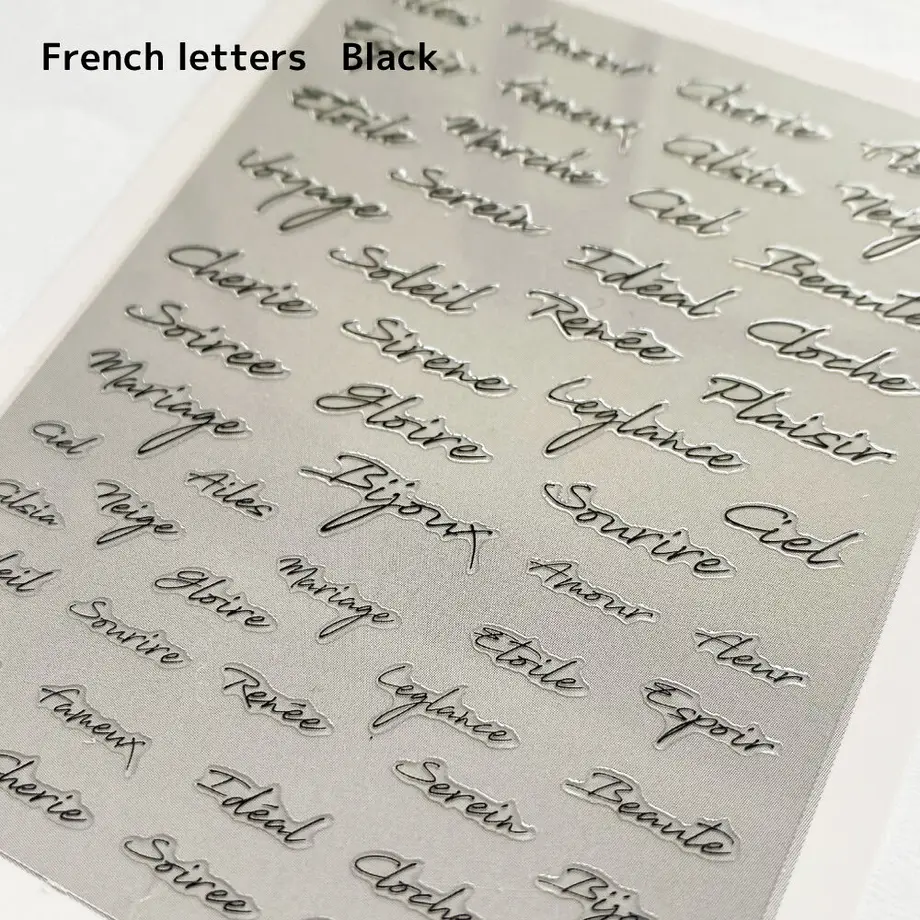 French letters Black
Ailes Amour Chérie
Espoir Fameux Cilsia
Etoile Marche Ciel Neige
Voyage Serein Idéal Beaute
Cherie Soleil Renée Cloche
Soiree Sirene Leglance Plaisir
Mariage Gloire
Ciel Bijoux Sourire Ciel
Cilsia Neige Ailes
Gloire Mariage Amour
Sourire Etoile Fleur
Renée Leglance Espoir
Fameux Serein Beaute
Cherie Idéal
Soiree Cloche